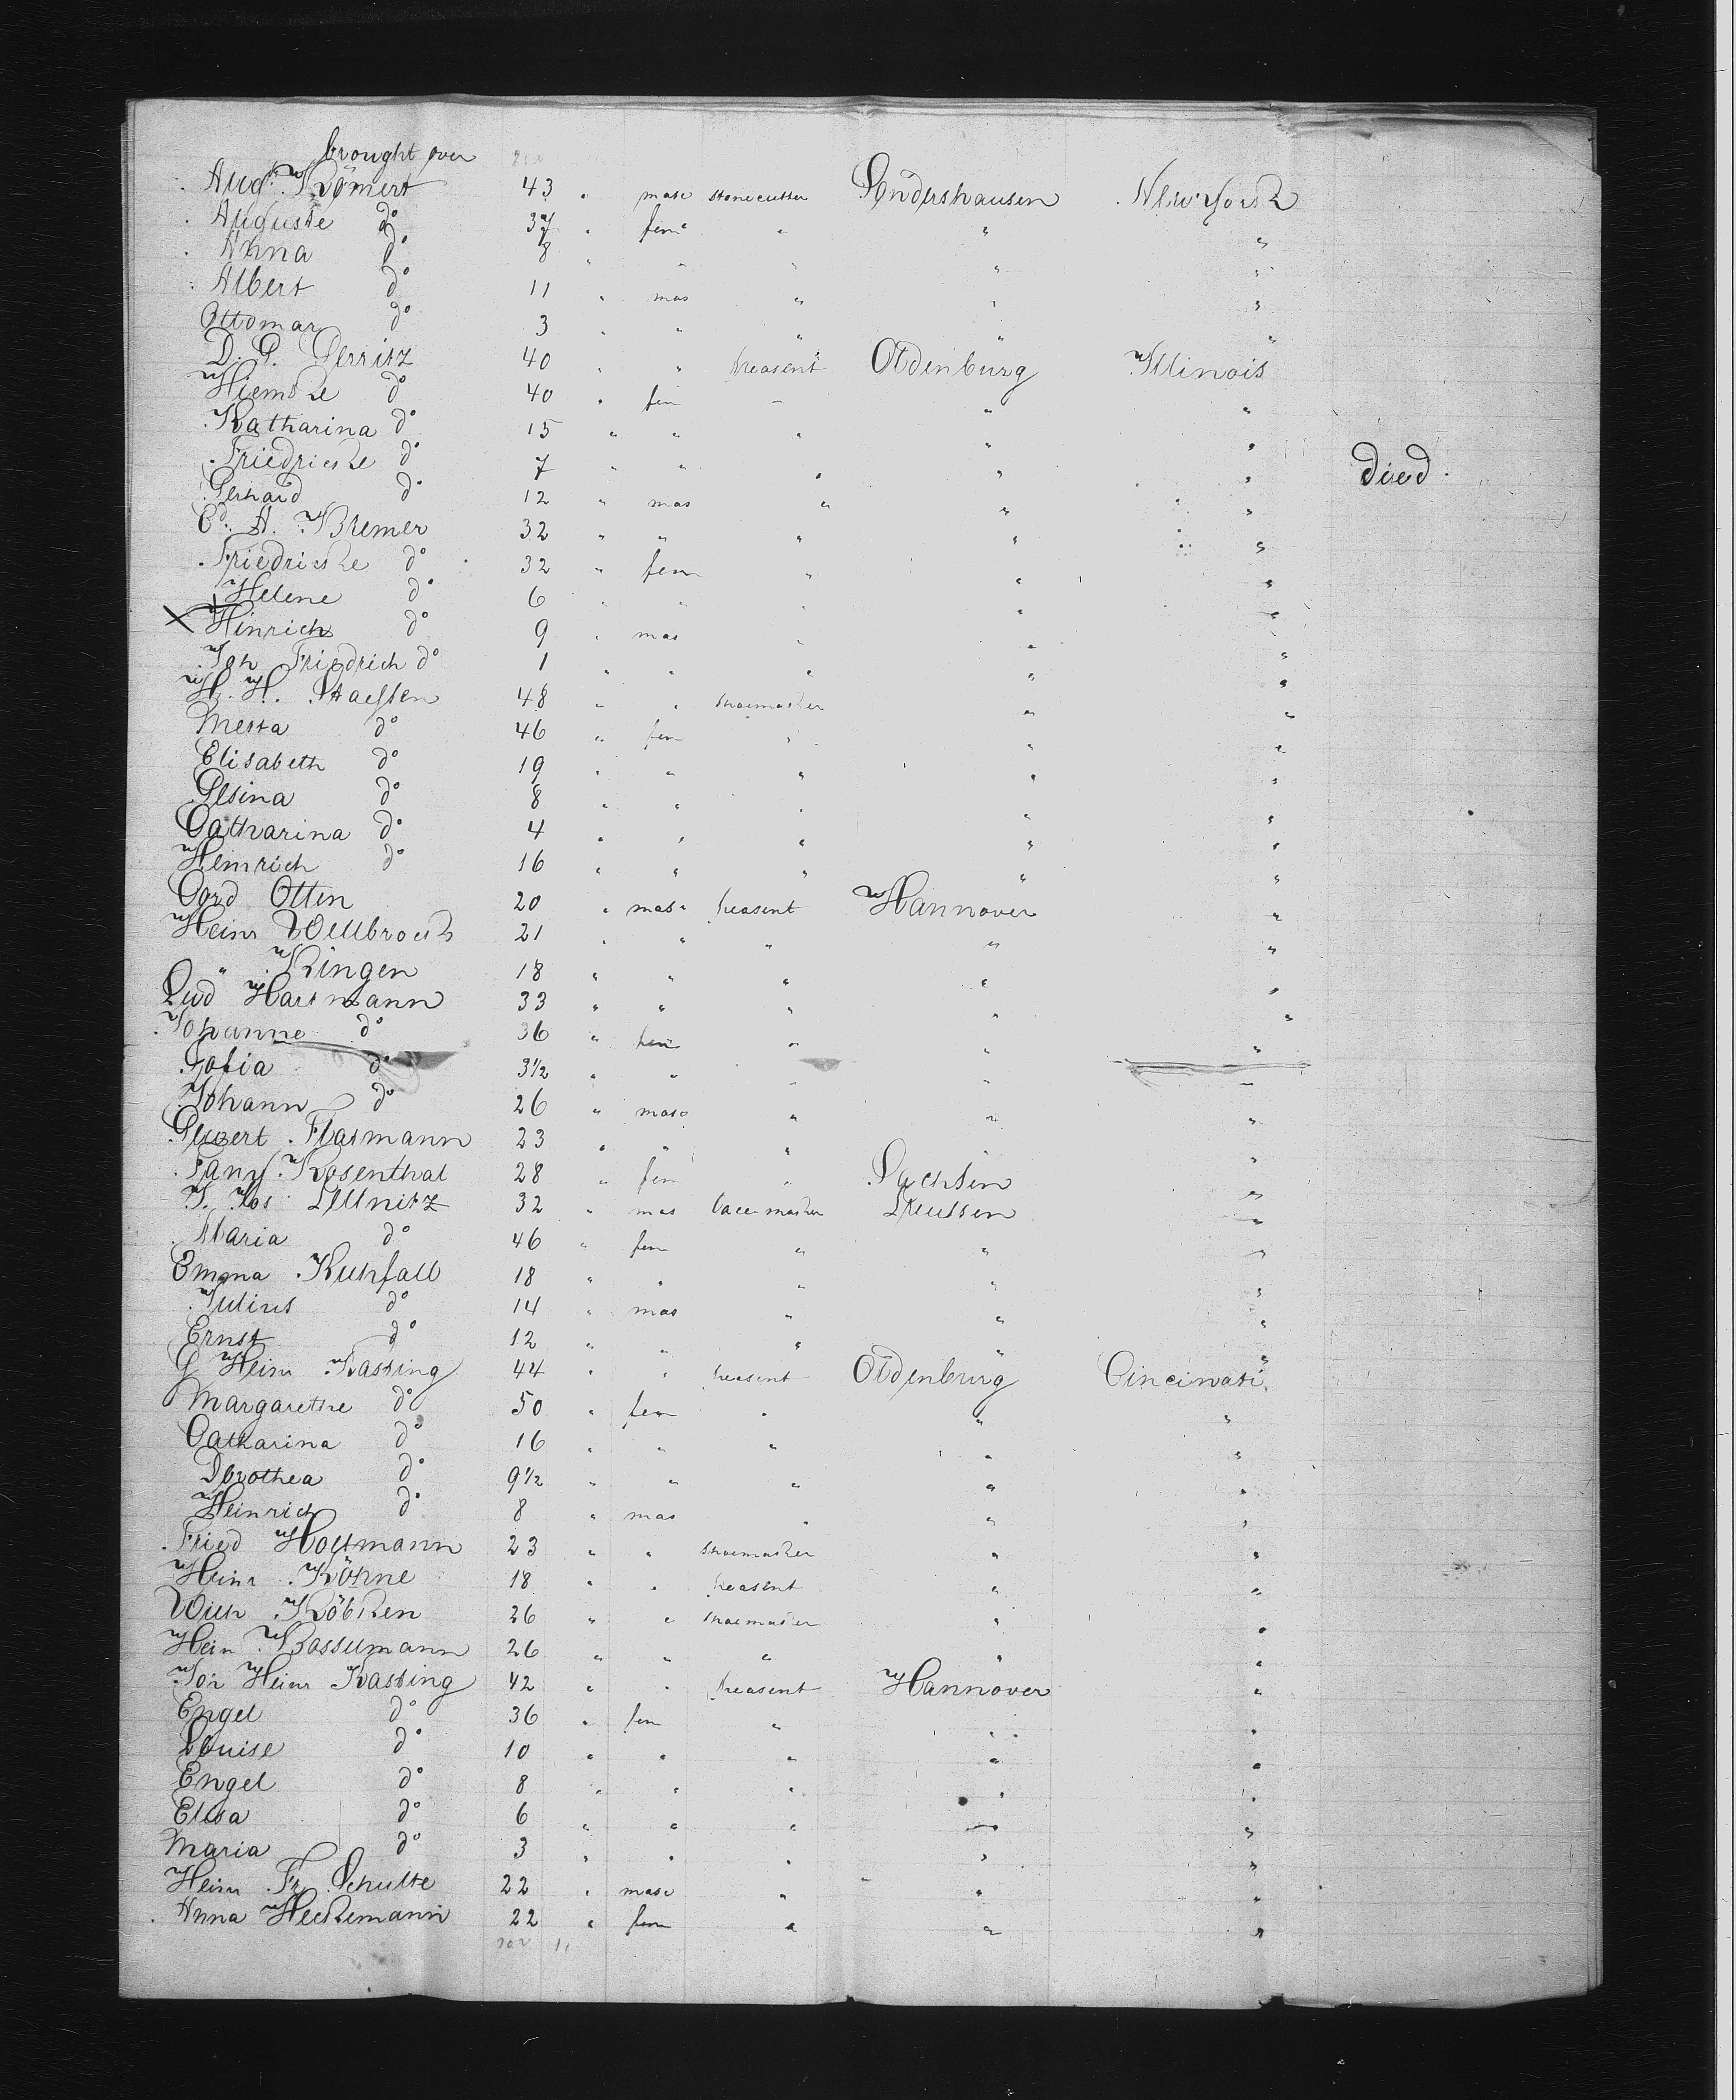 brought over
Aug. Römert 43 " masc stonecutter Sondershausen New York
Auguste do 37 " feme " " "
Anna do 8 " " " " "
Albert do 11 " mas " " "
Ottomar do 3 " " " " "
D. G. Gerritz 40 " " peasent Oldenburg Illinois
Hiemke do 40 " fem " " "
Katharina do 15 " " " " "
Friedricke do 7 " " " " " died.
Gerhard do 12 " mas " " "
Ed. A. Bremer 32 " " " " "
Friedricke do 32 " fem " " "
Helene do 6 " " " " "
X Hinrich do 9 " mas " " "
Joh Friedrich do 1 " " " " "
H. H. 48 " " shoemaker " "
Metta do 46 " fem " " "
Elisabeth do 19 " " " " "
Gesina do 8 " " " " "
Catharina do 4 " " " " "
Heinrich do 16 " " " " "
Cord Otten 20 " masc peasent Hannover "
Heinr Wellbrock 21 " " " " "
" Ringen 18 " " " " "
Lud Hartmann 33 " " " " "
Johanne do 36 " fem " " "
Sofia do 3½ " " " " "
Johann do 26 " masc " " "
Flatmann 23 " " " "
Fany Rosenthal 28 " fem " Sachsen "
F. Jos Lellnitz 32 " mas lacemaker Preussen "
Maria do 46 " fem " " "
Emma Kuhfall 18 " " " " "
Julius do 14 " mas " " "
Ernst do 12 " " " " "
G Heinr Kassing 44 " " peasent Oldenburg Cincinati.
Margarethe do 50 " fem " " "
Catharina do 16 " " " " "
Dorothea do 9½ " " " " "
Heinrich do 8 " mas " " "
Fried Holtmann 23 " " shoemaker " "
Heinr Köhne 18 " " peasent " "
Wilh Röbken 26 " " shoemaker " "
Hein Bosselmann 26 " " " " "
Joh Heinr Kassing 42 " " peasent Hannover "
Engel do 36 " fem " " "
Louise do 10 " " " " "
Engel do 8 " " " " "
Elisa do 6 " " " " "
Maria do 3 " " " " "
Heinr Fr. Schulte 22 " masc " " "
Anna Heckemann 22 " fem " " "